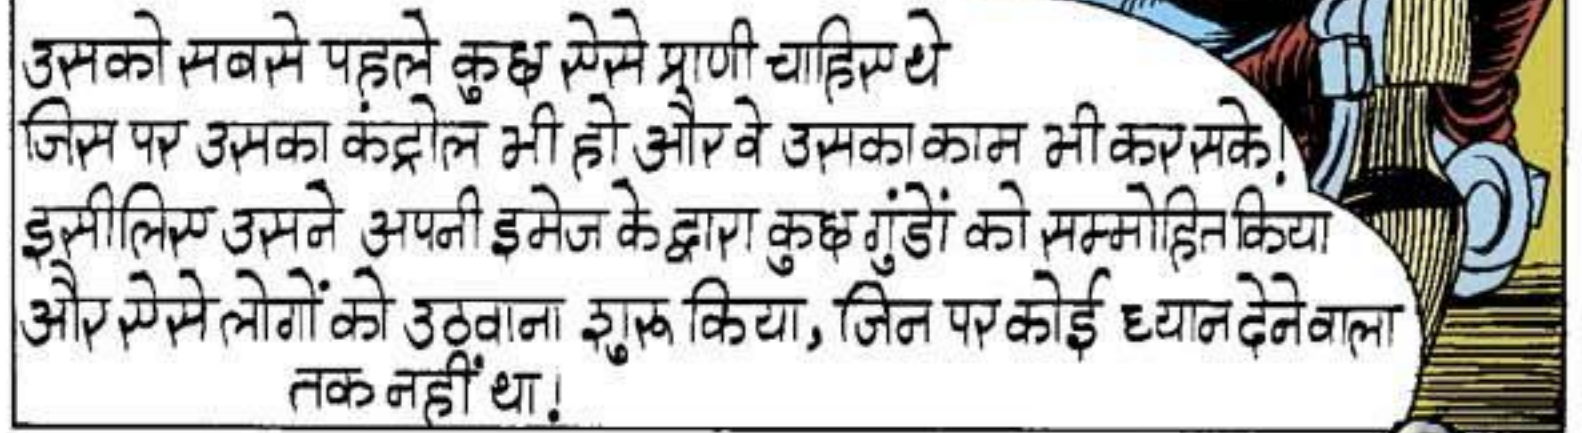 उसको सबसे पहले कुछ ऐसे प्राणी चाहिए थे
जिस पर उसका कंट्रोल भी हो और वे उसका काम भी कर सकें!
इसीलिए उसने अपनी इमेज के द्वारा कुछ गुंडों को सम्मोहित किया
और ऐसे लोगों को उठवाना शुरू किया, जिन पर कोई ध्यान देने वाला
तक नहीं था!